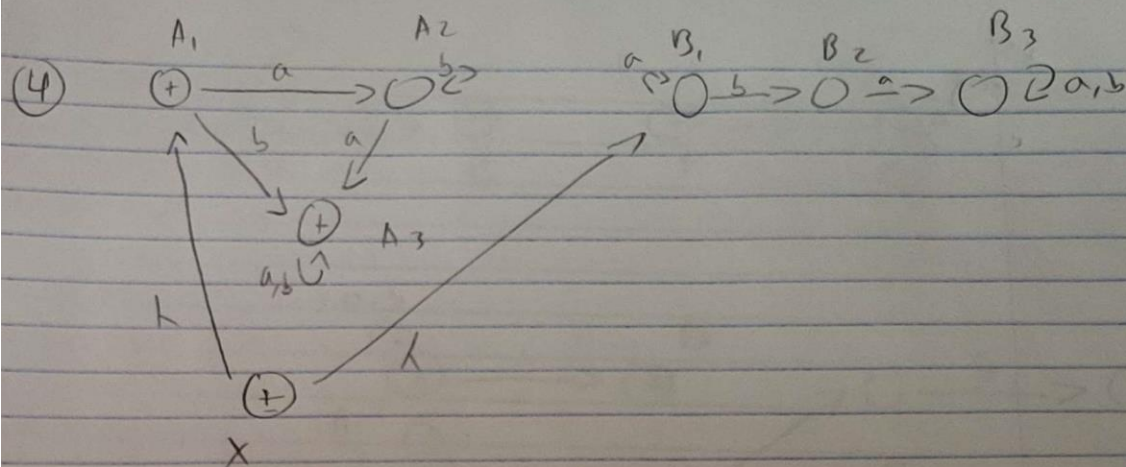 A1 A2 B1 B2 B3
④ + a b a b a a,b
b a
+ A3
a,b
λ λ
±
X